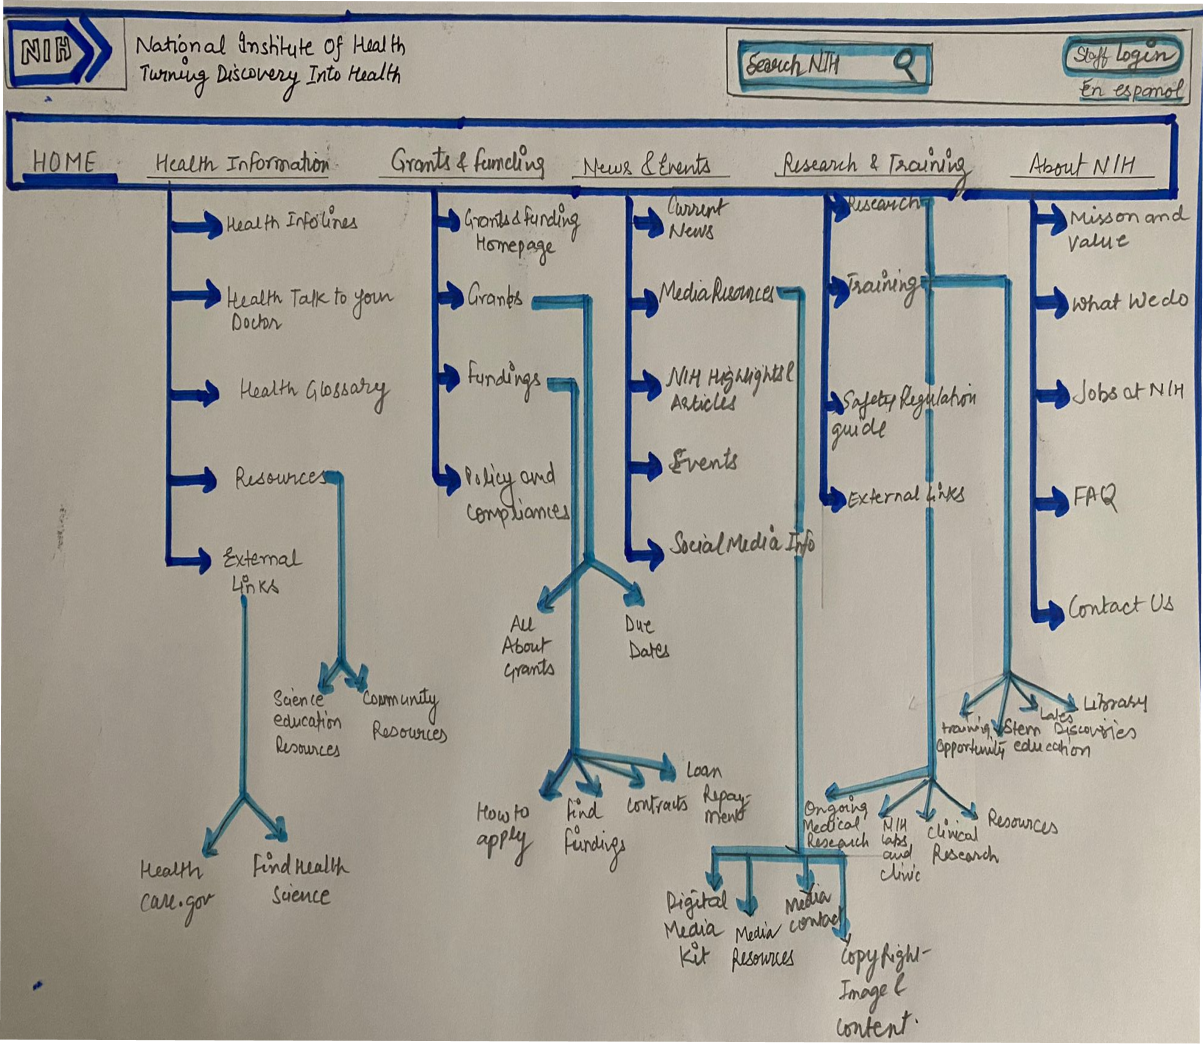 NIH
National Institute Of Health
Turning Discovery Into Health
Search NIH
Staff Login
En espanol
HOME
Health Information
Grants & Fumding
News & Events
Research & Training
About NIH
Health Infolines
Health Talk to your
Doctor
Health Glossary
Resources
External
Links
Science
education
Resources
Community
Resources
Health
Care.gov
Find Health
Science
Grants & funding
Homepage
Grants
Fundings
Policy and
Compliances
All
About
Grants
Due
Dates
How to
apply
Find
Fundings
Contracts
Loan
Repay-
ment
Current
News
Media Resources
NIH Highlights &
Articles
Events
Social Media Info
Digital
Media
Kit
Media
Resources
Media
Contact
Copy Right-
Image &
Content.
Research
Training
Safety Regulation
guide
External Links
Ongoing
Medical
Research
NIH
Labs
and
Clinic
Clinical
Research
Resources
training
Opportunity
Stem
education
Discoveries
Library
Misson and
Value
What We do
Jobs at NIH
FAQ
Contact Us